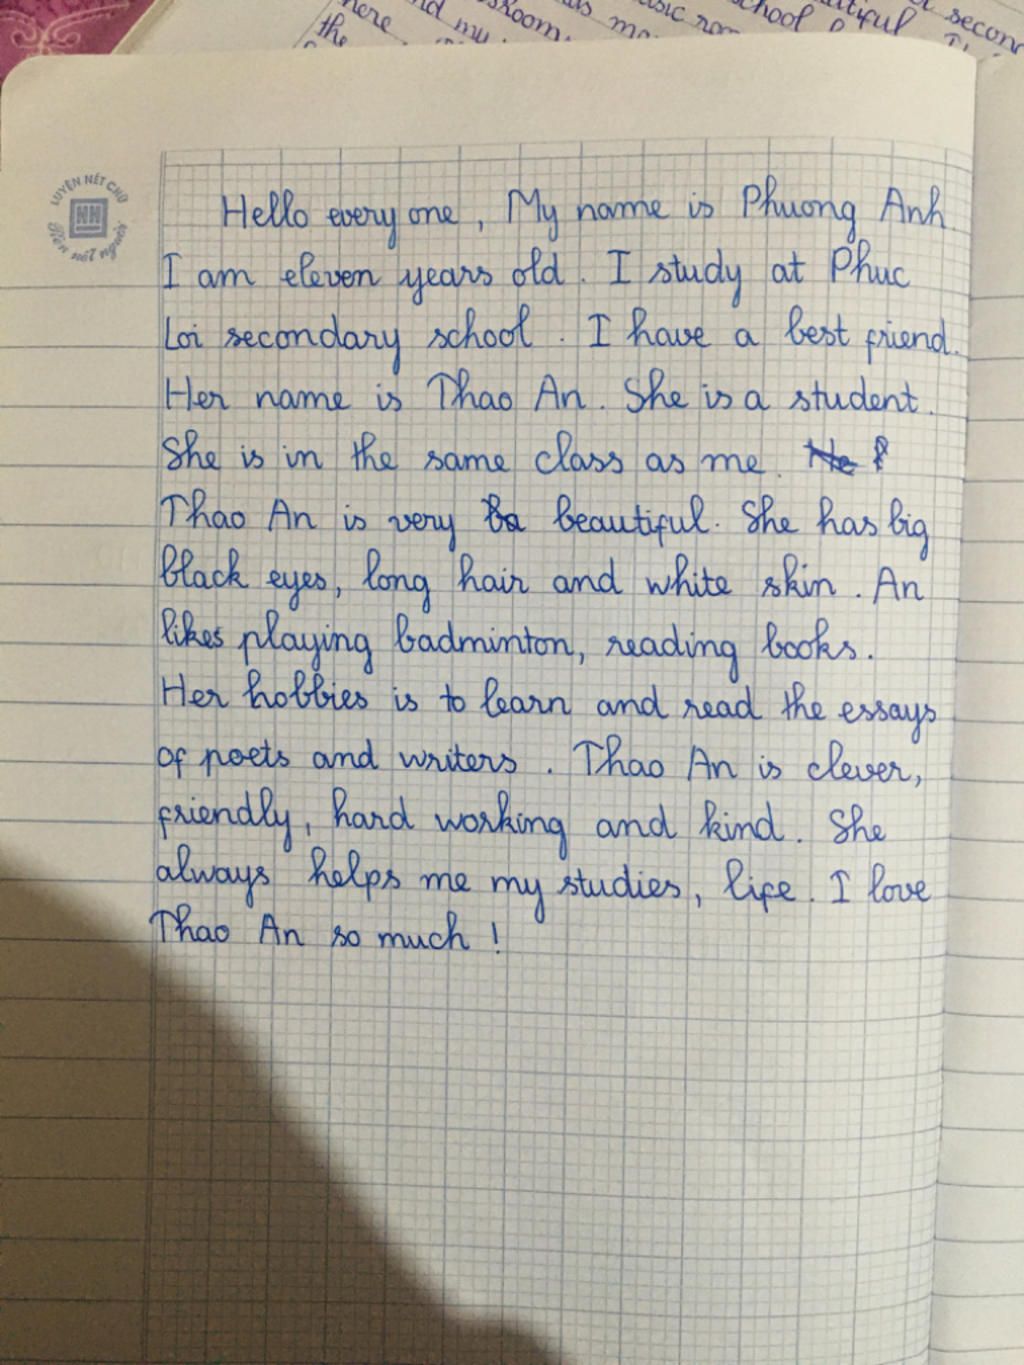 here
the
nd my
sroom,
as
music
school
second
LUYỆN NÉT CHỮ
NH
Rèn nết người
Hello every one, My name is Phuong Anh.
I am eleven years old. I study at Phuc
Loi secondary school. I have a best friend.
Her name is Thao An. She is a student.
She is in the same class as me.
Thao An is very beautiful. She has big
black eyes, long hair and white skin. An
likes playing badminton, reading books.
Her hobbies is to learn and read the essays
of poets and writers. Thao An is clever,
friendly, hard working and kind. She
always helps me my studies, life. I love
Thao An so much!